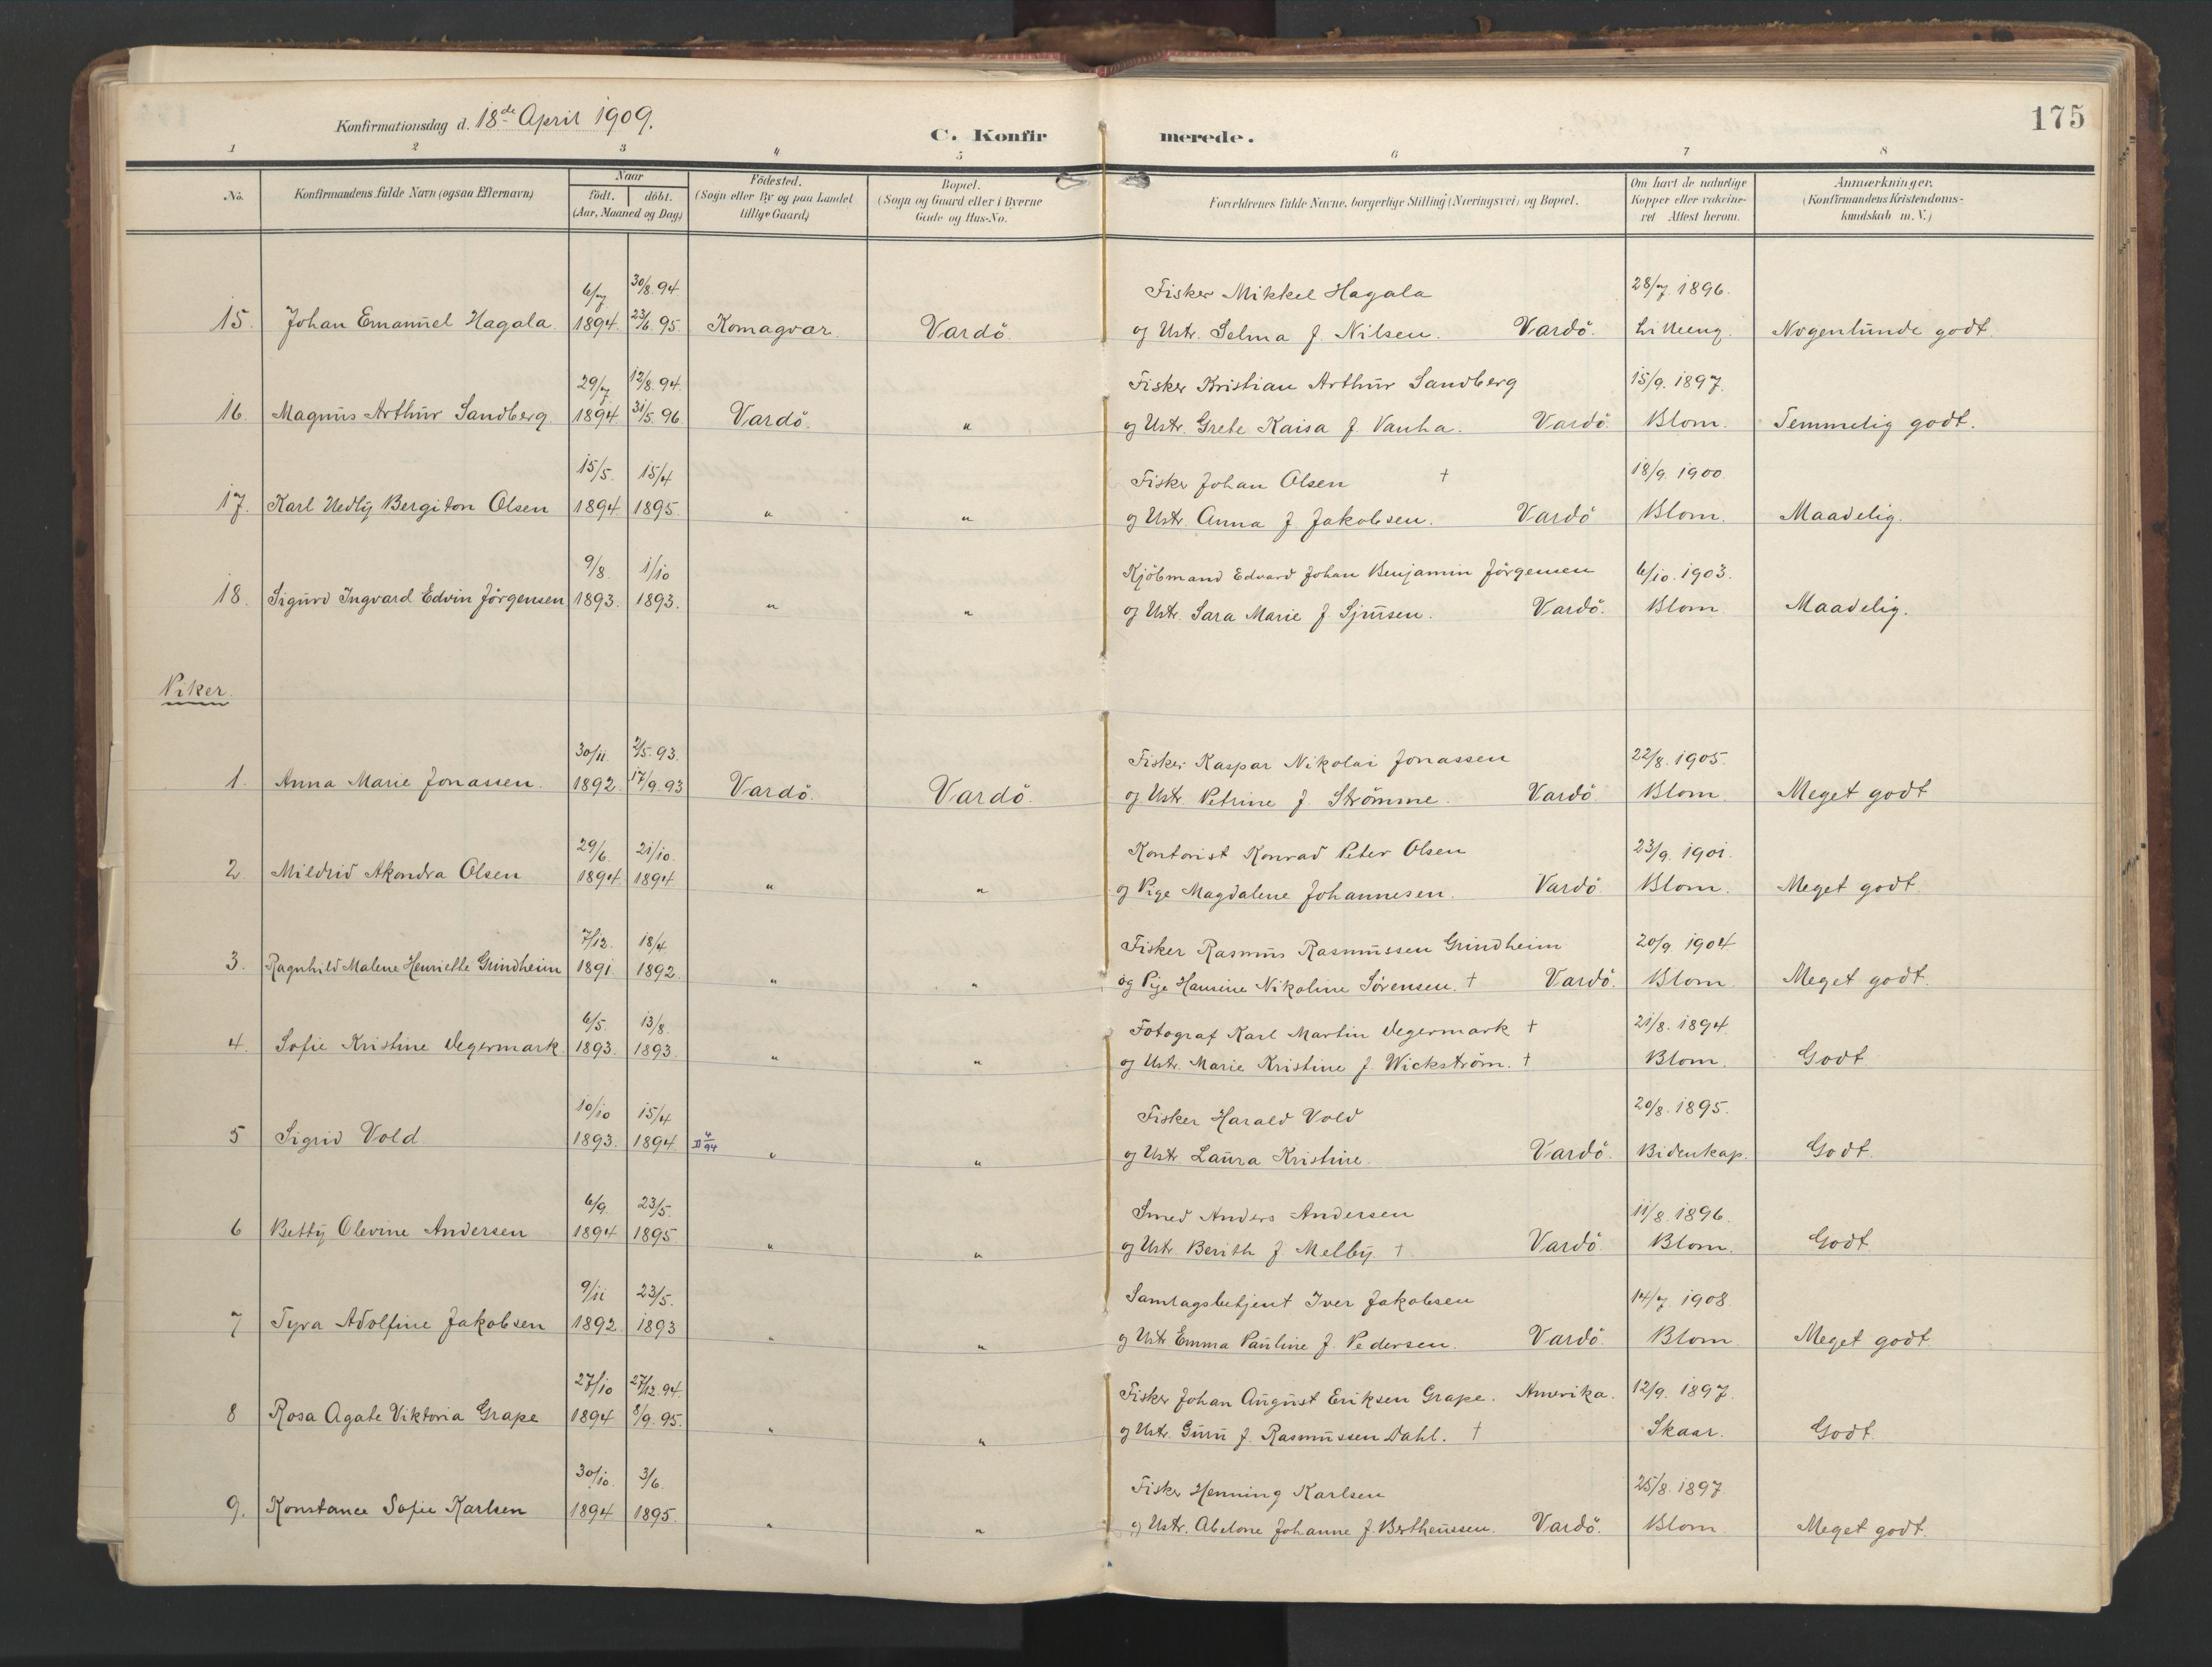 175
Konfirmationsdag d. 18de April 1909.
C. Konfirmerede.
1 2 3 4 5 6 7 8
No. Konfirmandens fulde Navn (ogsaa Efternavn) Naar født. døbt. (Aar, Maaned og Dag) Fødested. (Sogn eller By og paa Landet tillige Gaard) Bopæl. (Sogn og Gaard eller i Byerne Gade og Hus-No. Forældrenes fulde Navne, borgerlige Stilling (Næringsvei) og Bopæl. Om havt de naturlige Kopper eller vaccineret Attest herom. Anmærkninger. (Konfirmandens Kristendomskundskab m. V.)
6/7 30/8.94. Fisker Mikkel Hagala 28/7.1896.
15. Johan Emanuel Hagala. 1894. 23/6.95 Komagvær. Vardö. og Ustr. Selma f. Nilsen. Vardö. Lilleeng. Nogenlunde godt.
29/7 12/8.94. Fisker Kristian Arthur Sandberg 15/9.1897.
16. Magnus Arthur Sandberg. 1894. 31/5.96 Vardö. " og Ustr. Grete Kaisa f. Vanha. Vardö. Blom. Temmelig godt.
15/5. 15/4 Fisker Johan Olsen † 18/9.1900.
17. Karl Hedly Bergiton Olsen 1894 1895. " " og Ustr. Anna f. Jakobsen. Vardö Blom. Maadelig.
9/8. 1/10 Kjöbmand Edvard Johan Benjamin Jörgensen 6/10.1903.
18. Sigurd Ingvard Edvin Jörgensen 1893. 1893. " " og Ustr. Sara Marie f. Sjursen. Vardö. Blom. Maadelig.
Piker.
30/11. 2/5.93. Fisker Kaspar Nikolai Jonassen 22/8.1905.
1. Anna Marie Jonassen. 1892. 17/9.93 Vardö. Vardö. og Ustr. Petrine f. Strömme. Vardö Blom. Meget godt
29/6. 21/10. Kontorist Konrad Peter Olsen 23/9.1901.
2. Mildrid Akondra Olsen 1894 1894 " " og Pige Magdalene Johannesen. Vardö. Blom. Meget godt.
7/12. 18/4. Fisker Rasmus Rasmussen Grindheim 20/9 1904
3. Ragnhild Malene Henriette Grindheim 1891. 1892. " " og Pige Hansine Nikoline Sörensen. † Vardö. Blom. Meget godt.
6/5. 13/8. Fotograf Karl Martin Vegermark † 21/8.1894.
4. Sofie Kristine Vegermark 1893. 1893. " " og Ustr. Marie Kristine f. Wickström. † Blom. Godt.
10/10 15/4 Fisker Harald Vold 20/8.1895.
5 Sigrid Vold 1893. 1894 4/94 " " og Ustr. Laura Kristine. Vardö. Bidenkap. Godt.
6/9. 23/5. Smed Anders Andersen 11/8.1896.
6 Betty Olevine Andersen 1894 1895 " " og Ustr. Berith f. Melby. † Vardö. Blom. Godt.
9/11 23/5. Samlagsbetjent Iver Jakobsen 14/7.1908.
7 Tyra Adolfine Jakobsen 1892. 1893 " " og Ustr. Emma Pauline f. Pedersen. Vardö. Blom. Meget godt.
27/10 27/12.94. Fisker Johan August Eriksen Grape. Amerika. 12/9.1897.
8 Rosa Agate Viktoria Grape 1894 8/9.95. " " og Ustr. Guru f. Rasmussen Dahl. † Skaar. Godt.
30/10. 3/6. Fisker Henning Karlsen 25/8.1897.
9. Konstance Sofie Karlsen 1894 1895. " " og Ustr. Abelone Johanne f. Bertheussen. Vardö. Blom. Meget godt.